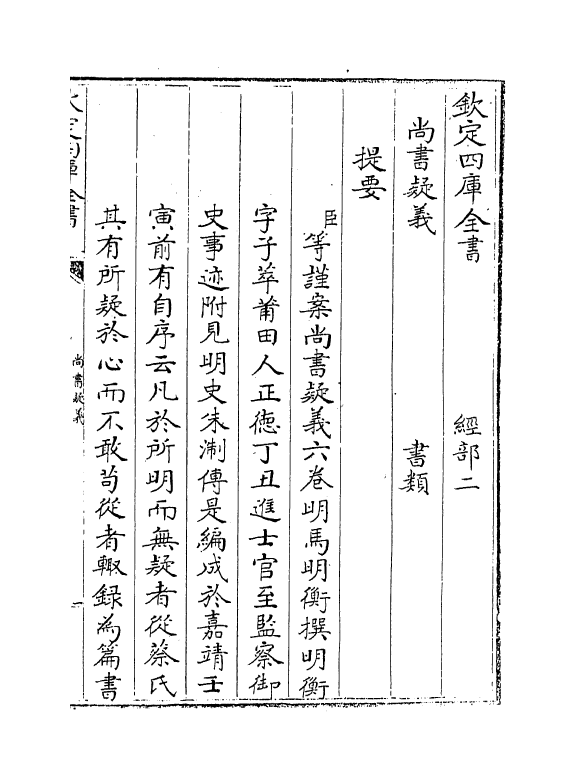 欽定四庫全書 經部二
尚書疑義 書類
提要
臣等謹案尚書疑義六卷明馬明衡撰明衡
字子萃莆田人正德丁丑進士官至監察御
史事迹附見明史朱淛傳是編成於嘉靖壬
寅前有自序云凡於所明而無疑者從蔡氏
其有所疑於心而不敢苟從者輙録為篇書
欽定四庫全書 尚書疑義 一